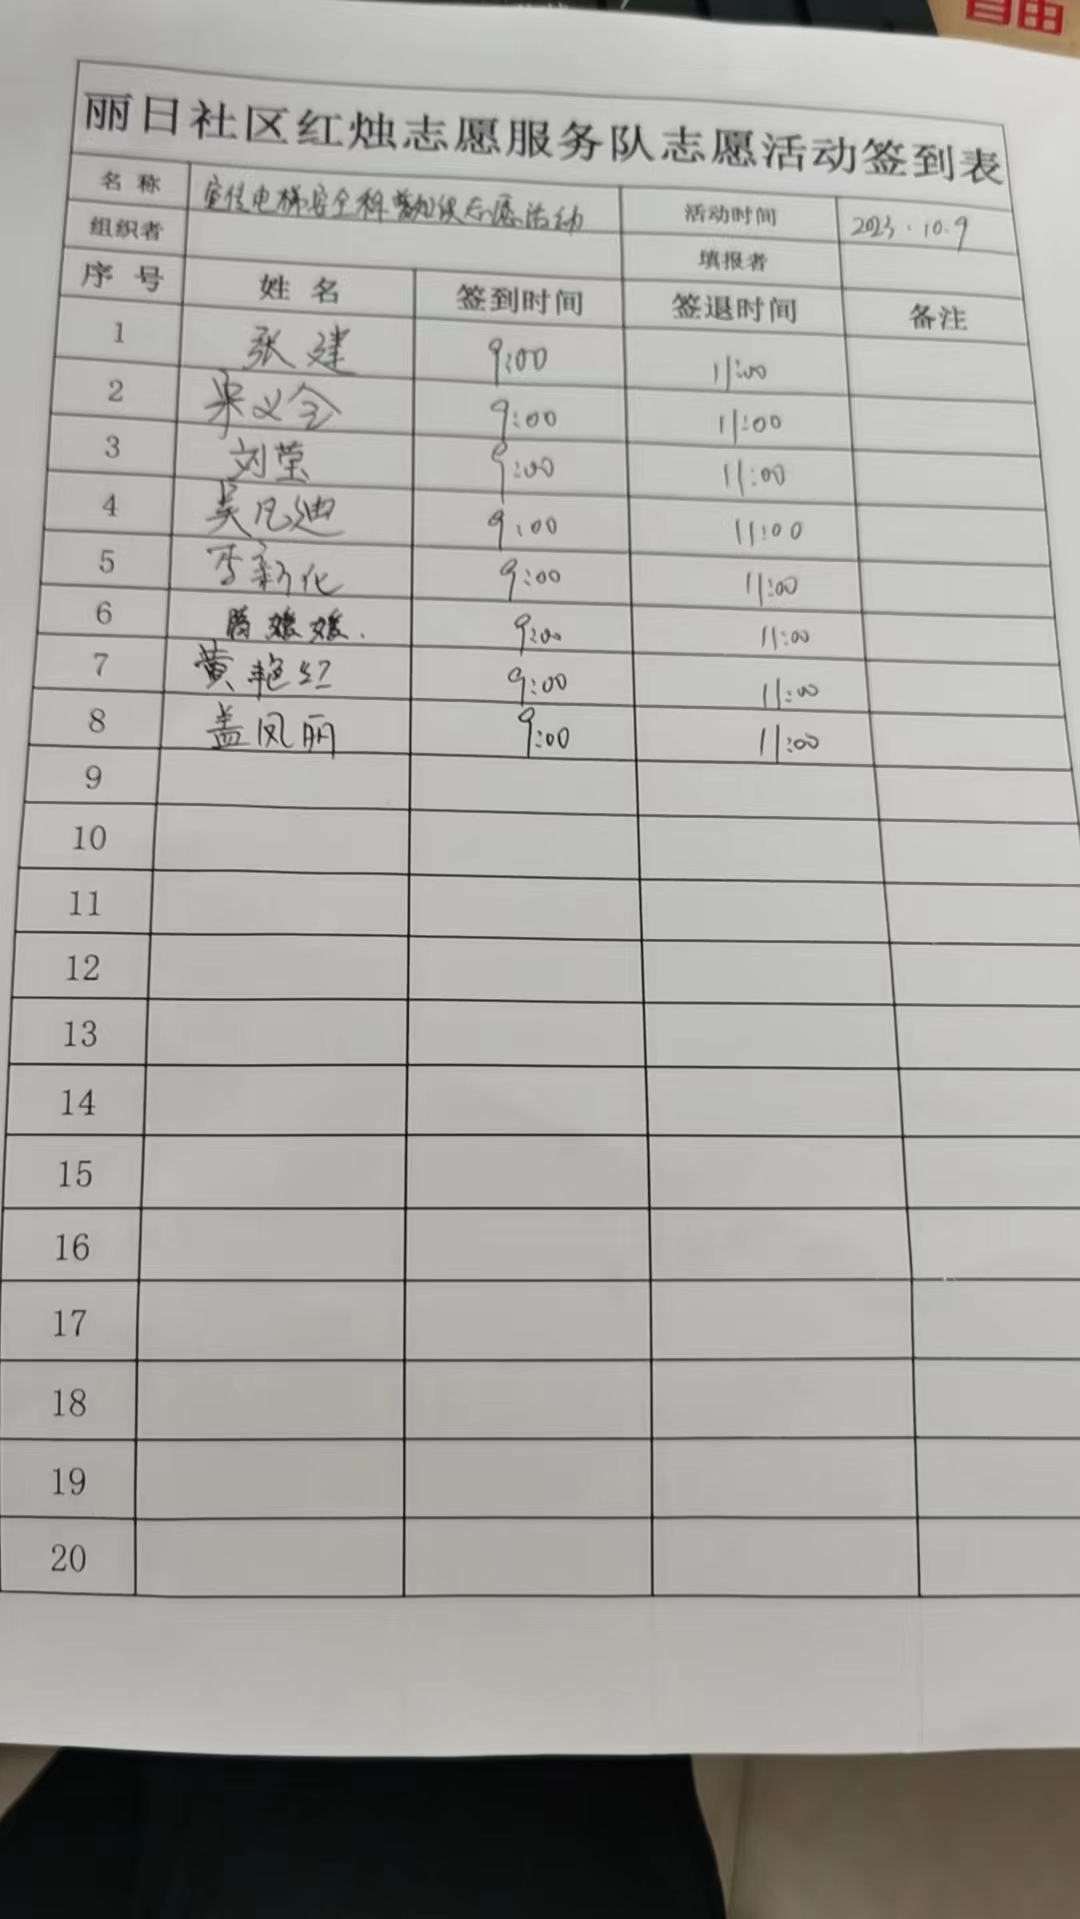 自由
丽日社区红烛志愿服务队志愿活动签到表
名称 宣传电梯安全科普知识志愿活动 活动时间 2023.10.9
组织者 填报者
序号 姓名 签到时间 签退时间 备注
1 张建 9:00 11:00
2 梁义全 9:00 11:00
3 刘莹 9:00 11:00
4 吴凡迪 9:00 11:00
5 李新化 9:00 11:00
6 媛媛. 9:00 11:00
7 黄艳红 9:00 11:00
8 盖凤丽 9:00 11:00
9
10
11
12
13
14
15
16
17
18
19
20